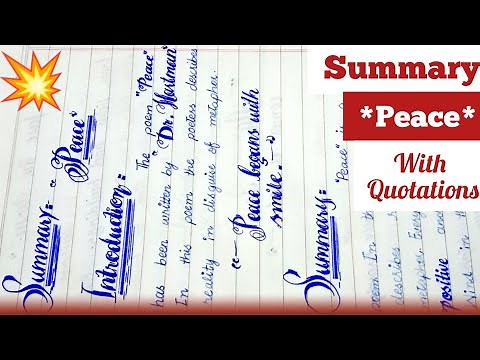 Summary
*Peace*
With
Quotations
Summary: "Peace"
Introduction:
The poem "Peace"
has been written by "Dr. Hartman"
In this poem the poetess describes
reality in disguise of metapher.
"Peace begans with
smile."
Summary:
"Peace" is
poem. In
describes
metapher. Every
positive and
in